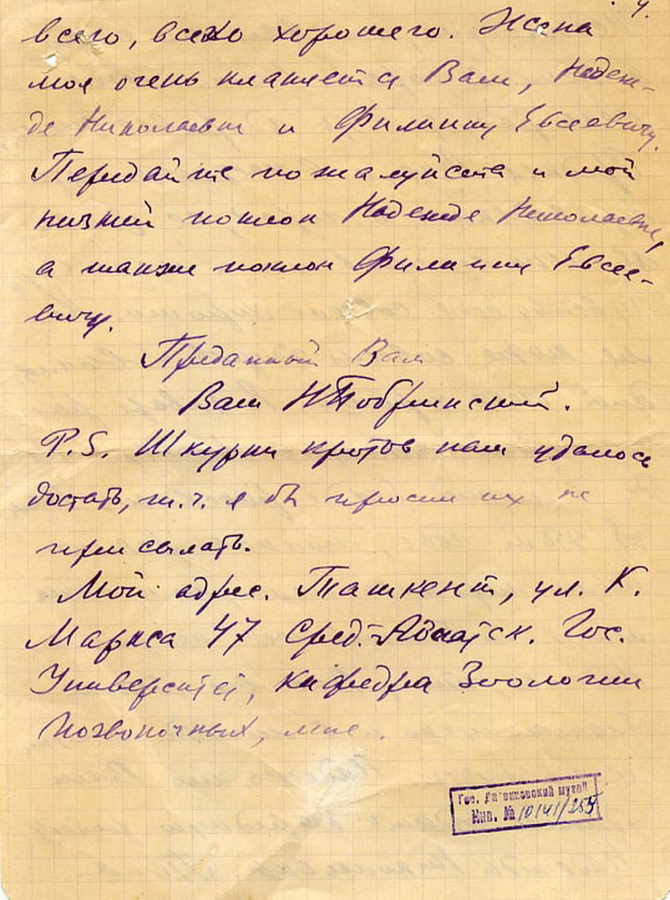 4.
всего, всего хорошего. Жена
моя очень кланяется Вам, Надеж-
де Николаевне и Филиппу Евсеевичу.
Передайте пожалуйста и мой
низкий поклон Надежде Николаевне,
а также поклон Филиппу Евсее-
вичу.
Преданный Вам
Ваш Н Бобринский.
P.S. Шкурки кротов нам удалось
достать, т.ч. я бы просил их не
присылать.
Мой адрес. Ташкент, ул. К.
Маркса 47 Сред.-Азиатск. Гос.
Университет, кафедра Зоологии
Позвоночных, мне.
Гос. Дарвиновский музей
Инв. № 10141/255